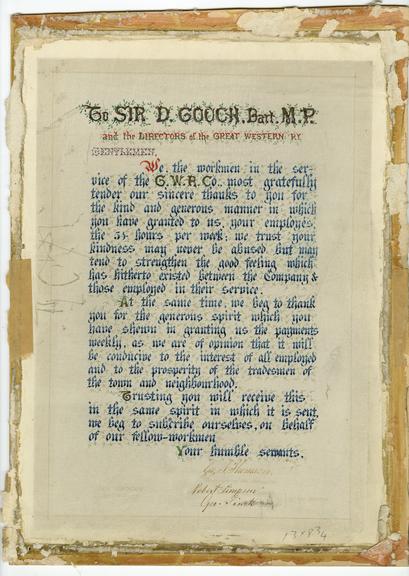 To SIR D. GOOCH, Bart. M.P.
and the DIRECTORS of the GREAT WESTERN RY.
GENTLEMEN,
We, the workmen in the ser-
vice of the G.W.R. Co., most gratefully
tender our sincere thanks to you for
the kind and generous manner in which
you have granted to us, your employés,
the 54 hours per week; we trust your
kindness may never be abused but may
tend to strengthen the good feeling which
has hitherto existed between the Company &
those employed in their service.
At the same time, we beg to thank
you for the generous spirit which you
have shewn in granting us the payments
weekly, as we are of opinion that it will
be conducive to the interest of all employed
and to the prosperity of the tradesmen of
the town and neighbourhood.
Trusting you will receive this
in the same spirit in which it is sent,
we beg to subscribe ourselves, on behalf
of our fellow-workmen
Your humble servants,
Robert Simpson
Geo.